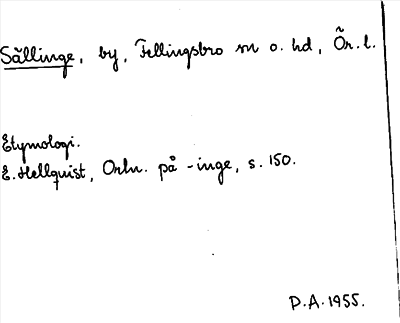 Sällinge, by, Fellingsbro sn o. hd, Ör. l.
Etymologi.
E. Hellquist, Ortn. på -inge, s. 150.
P.A. 1955.